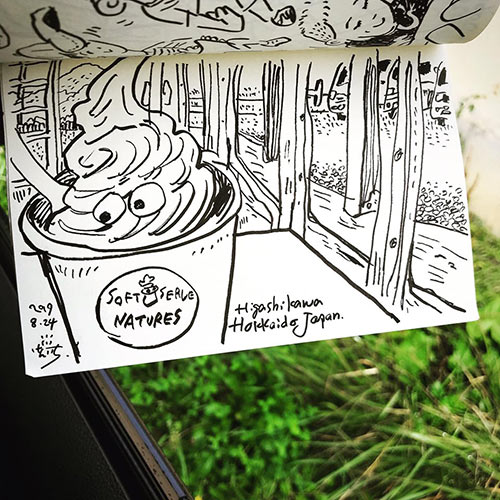 SOFT SERVE
NATURES
2019
8.24
Higashikawa
Hokkaido Japan.